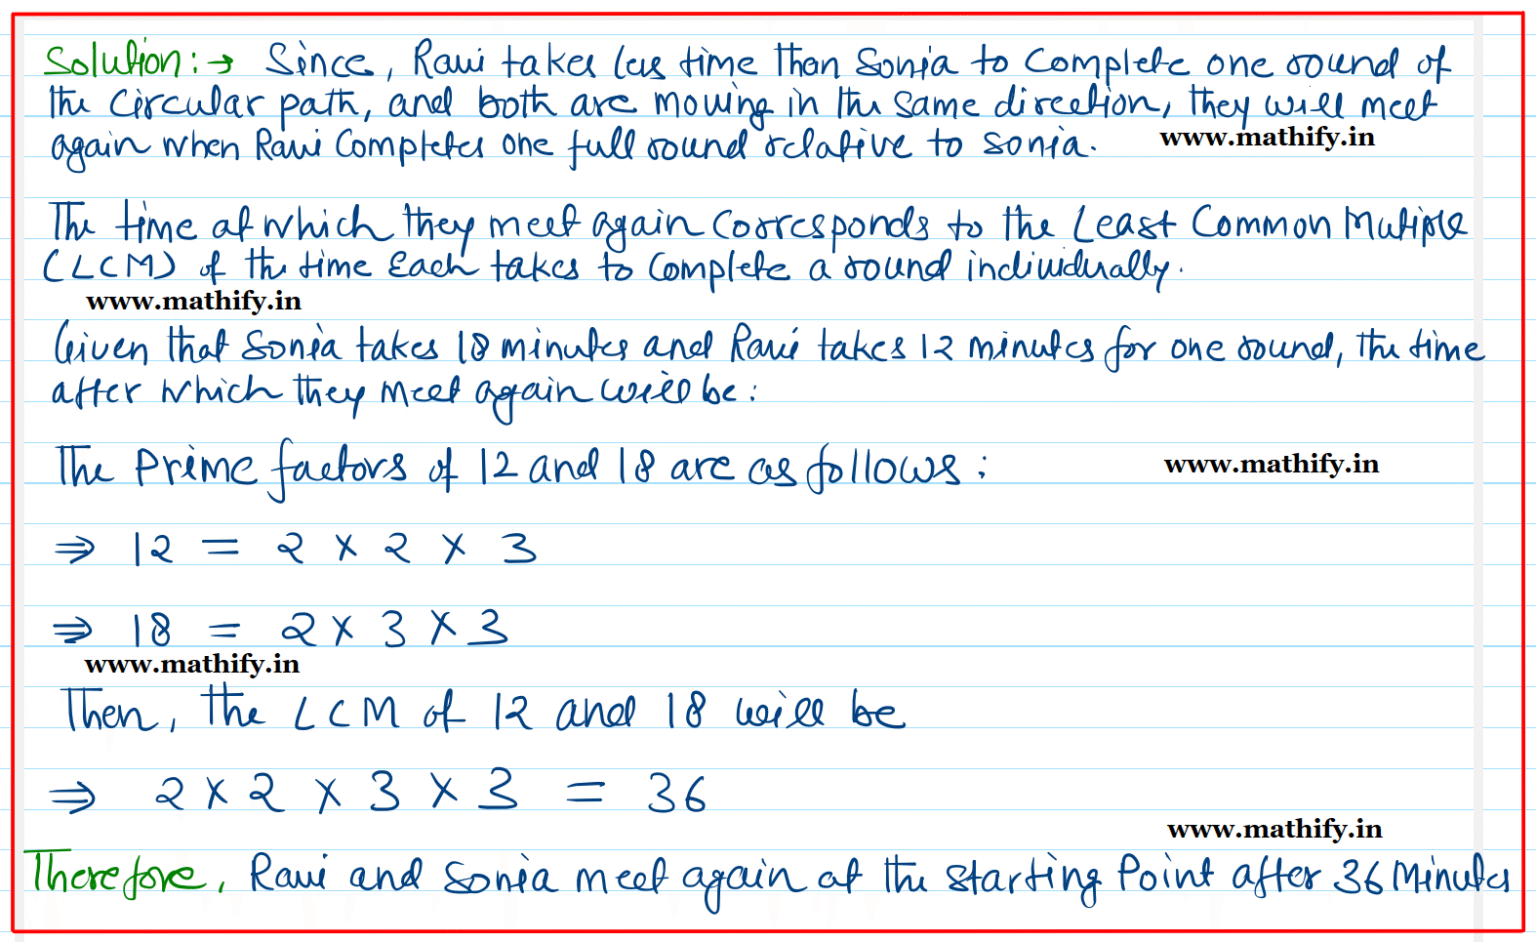 Solution:→ Since, Ravi takes less time than Sonia to Complete one round of
the circular path, and both are moving in the same direction, they will meet
again when Ravi Completes one full round relative to sonia.
www.mathify.in
The time at which they meet again corresponds to the Least Common Mutiple
(LCM) of the time Each takes to Complete a round individually.
www.mathify.in
Given that Sonia takes 18 minutes and Ravi takes 12 minutes for one round, the time
after which they meet again will be:
The Prime factors of 12 and 18 are as follows:
www.mathify.in
⇒ 12 = 2 × 2 × 3
⇒ 18 = 2 × 3 × 3
www.mathify.in
Then, the LCM of 12 and 18 will be
⇒ 2 × 2 × 3 × 3 = 36
www.mathify.in
Therefore, Ravi and Sonia meet again at the starting Point after 36 Minutes